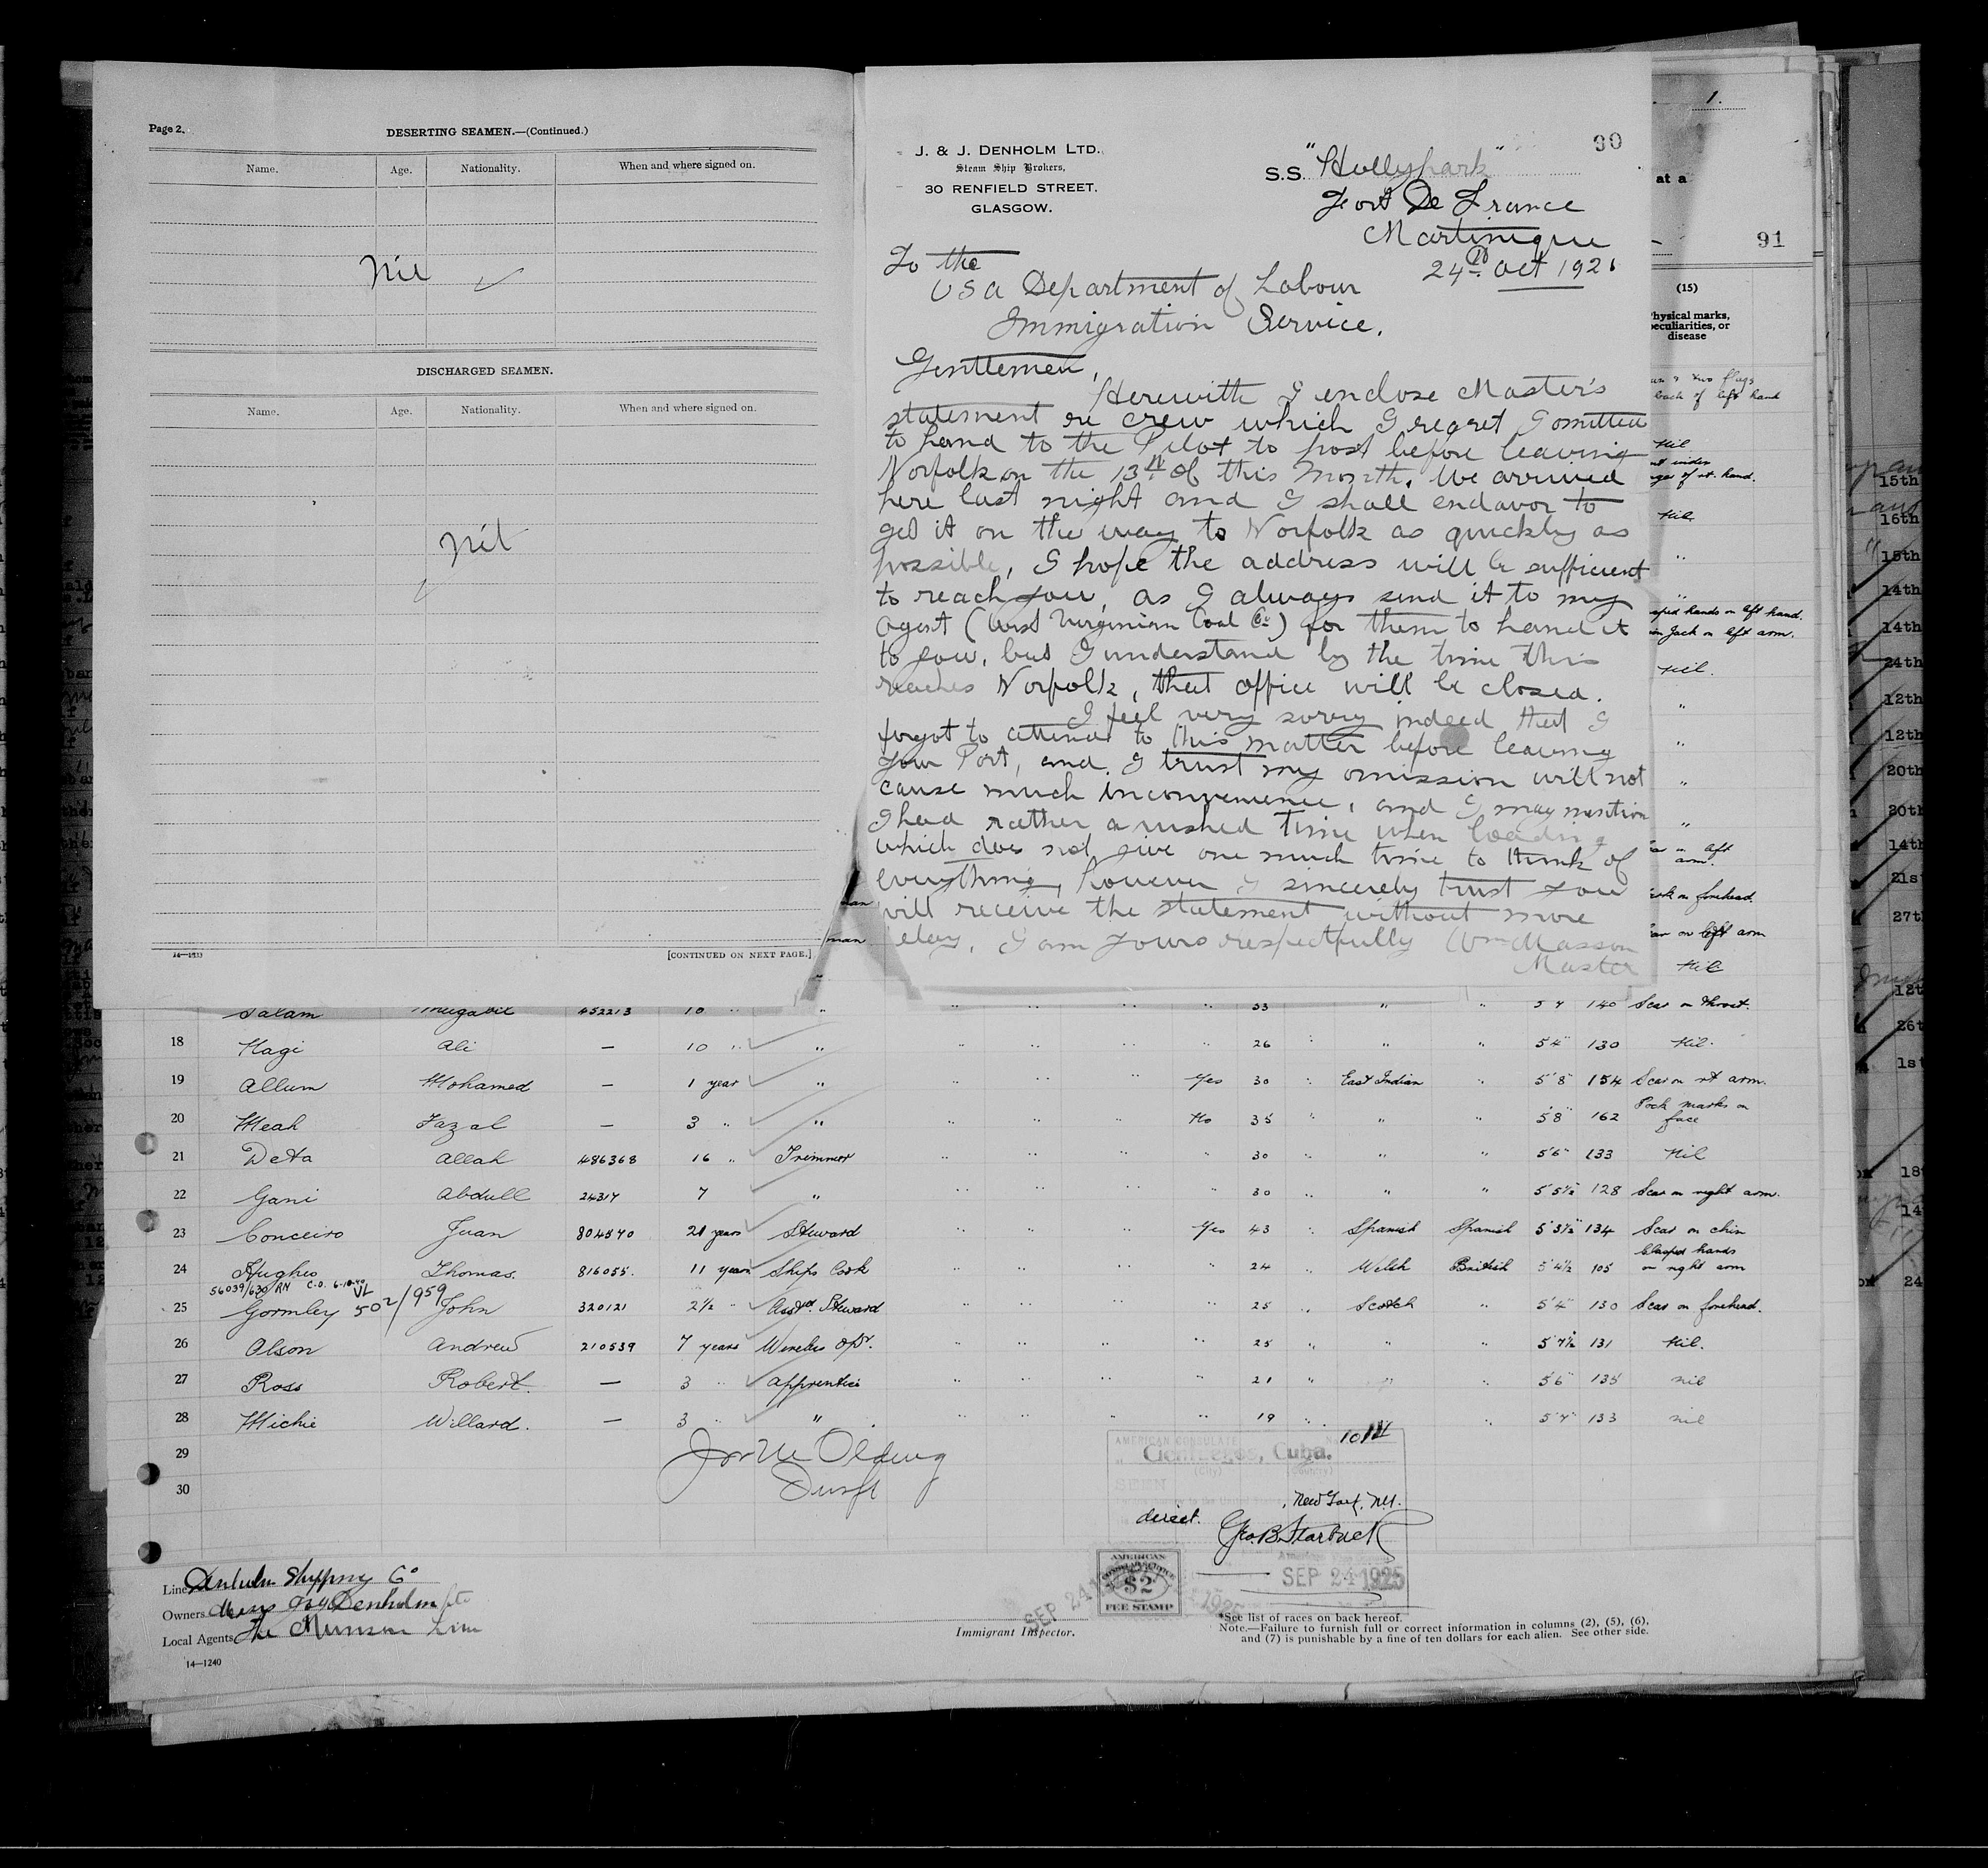 Page 2.
DESERTING SEAMEN.—(Continued.)
Name. Age. Nationality. When and where signed on.
Nil
DISCHARGED SEAMEN.
Name. Age. Nationality. When and where signed on.
Nil
14—1233
[CONTINUED ON NEXT PAGE.]
J. & J. DENHOLM LTD.
Steam Ship Brokers,
30 RENFIELD STREET.
GLASGOW.
90
S.S. "Hollypark"
Fort De France
Martinique
24th Oct 192
To the
USA Department of Labour
Immigration Service.
Gentlemen,
Herewith I enclose Master's
statement re crew which I regret I omitted
to hand to the Pilot to post before leaving
Norfolk on the 13th of this month. We arrived
here last night and I shall endavor to
get it on the way to Norfolk as quickly as
possible, I hope the address will be sufficient
to reach you, as I always send it to my
agent (West Virginian Coal Co) for them to hand it
to you, but I understand by the time this
reaches Norfolk, that office will be closed.
I feel very sorry indeed that I
forgot to attend to this matter before leaving
your Port, and I trust my omission will not
cause much inconvenience, and I may mention
I had rather a rushed time when loading
which does not give one much time to think of
everything, however I sincerely trust you
will receive the statement without more
delay. I am yours respectfully Wm Masson
Master
1.
at a
91
(15)
Physical marks, peculiarities, or disease
two flags
back of left hand
Nil
of rt. hand.
Nil
"
"
hands on left hand.
Jack on left arm.
Nil.
"
"
"
"
on left
arm.
on forehead.
on left arm
Nil
15th
16th
15th
14th
14th
24th
12th
12th
20th
20th
14th
21st
27th
12th
26th
1st
18
14
24
man
man
Salam 452213 10 " " 33 " " 5 7 140 Scar on throat.
18 Hagi Ali — 10 " " 26 " " 5 4" 130 Nil.
19 Allum Mohamed — 1 year " Yes 30 " East Indian " 5 8" 154 Scar on rt arm.
20 Meah Fazal — 3 " " No 35 " " " 5 8" 162 Pock marks on face
21 Deta Allah 486368 16 " Trimmer " 30 " " " 5 6" 133 Nil
22 Gani Abdull 24317 7 " " 30 " " " 5 5½" 128 Scar on right arm.
23 Conceiro Juan 804570 21 years Steward Yes 43 Spanish Spanish 5 3½" 134 Scar on chin
24 Hughes Thomas. 816055. 11 years Ships Cook " 24 " Welsh British 5 4½ 105 Clasped hands on right arm
56039/630/RN C.O. 6-18-40 VL
502/959
25 Gormley John 320121 2½ " Asst. Steward " 25 " Scotch " 5 4" 130 Scar on forehead.
26 Olson Andrew 210539 7 years Wireless Opr. " 25 " " " 5 7½ 131 Nil.
27 Ross Robert. — 3 " Apprentice " 21 " " " 5 6" 135 nil
28 Michie Willard. — 3 " " " 19 " " 5 7" 133 nil
29
30
AMERICAN CONSULATE
Cienfuegos, Cuba.
(City) (Country)
SEEN
New York, N.Y.
direct.
Geo. B. Starbuck
SEP 24 1925
AMERICAN
CONSULAR SERVICE
$2
FEE STAMP
SEP 24 1925
Line Denholm Shipping Co
Owners Mess J & J Denholm Ltd
Local Agents The Munson Line
14—1240
Immigrant Inspector.
*See list of races on back hereof.
Note.—Failure to furnish full or correct information in columns (2), (5), (6),
and (7) is punishable by a fine of ten dollars for each alien. See other side.